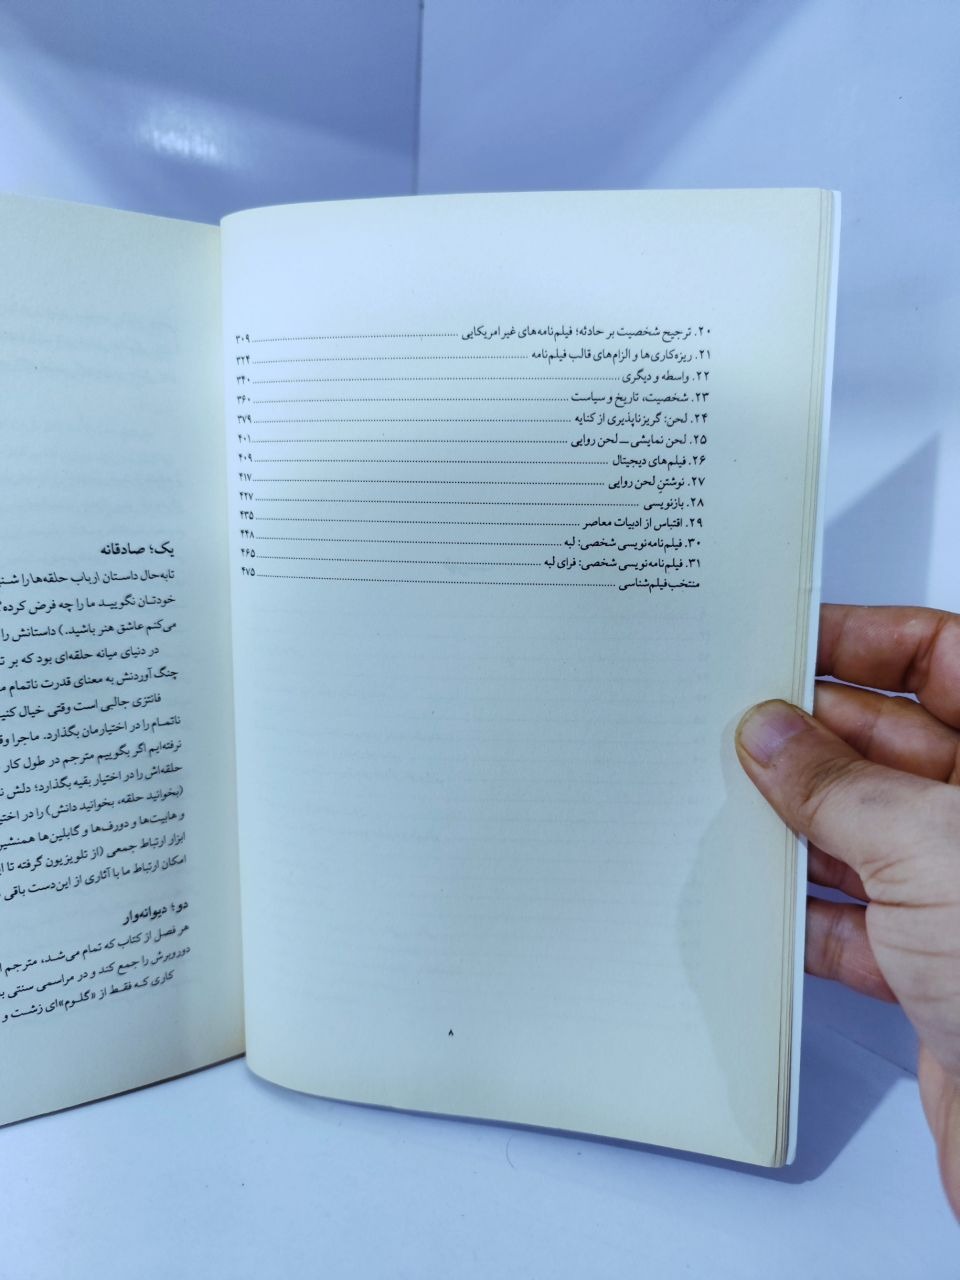 ۲۰. ترجیح شخصیت بر حادثه؛ فیلم‌نامه‌های غیر امریکایی ۳۰۹
۲۱. ریزه‌کاری‌ها و الزام‌های قالب فیلم‌نامه ۳۲۴
۲۲. واسطه و دیگری ۳۴۰
۲۳. شخصیت، تاریخ و سیاست ۳۶۰
۲۴. لحن: گریزناپذیری از کنایه ۳۷۹
۲۵. لحن نمایشی – لحن روایی ۴۰۱
۲۶. فیلم‌های دیجیتال ۴۰۹
۲۷. نوشتنِ لحن روایی ۴۱۷
۲۸. بازنویسی ۴۲۷
۲۹. اقتباس از ادبیات معاصر ۴۳۵
۳۰. فیلم‌نامه‌نویسی شخصی: لبه ۴۴۸
۳۱. فیلم‌نامه‌نویسی شخصی: فرای لبه ۴۶۵
منتخب فیلم‌شناسی ۴۷۵
۸
یک؛ صادقانه
تابه‌حال داستان ارباب حلقه‌ها را
خودتان نگویید ما را چه فرض کرده
می‌کنم عاشق هنر باشید.) داستانش را
در دنیای میانه حلقه‌ای بود که بر
چنگ آوردنش به معنای قدرت ناتمام
فانتزی جالبی است وقتی خیال
ناتمام را در اختیارمان بگذارد. ماجرا
نرفته‌ایم اگر بگوییم مترجم در طول کار
حلقه‌اش را در اختیار بقیه بگذارد؛ دلش
(بخوانید حلقه، بخوانید دانش) را در
و هابیت‌ها و دورف‌ها و گابلین‌ها
ابزار ارتباط جمعی (از تلویزیون گرفته تا
امکان ارتباط ما با آثاری از این‌دست باقی
دو؛ دیوانه‌وار
هر فصل از کتاب که تمام می‌شد، مترجم
دوروبرش را جمع کند و در مراسمی سنتی
کاری که فقط از «گلوم»ای زشت و